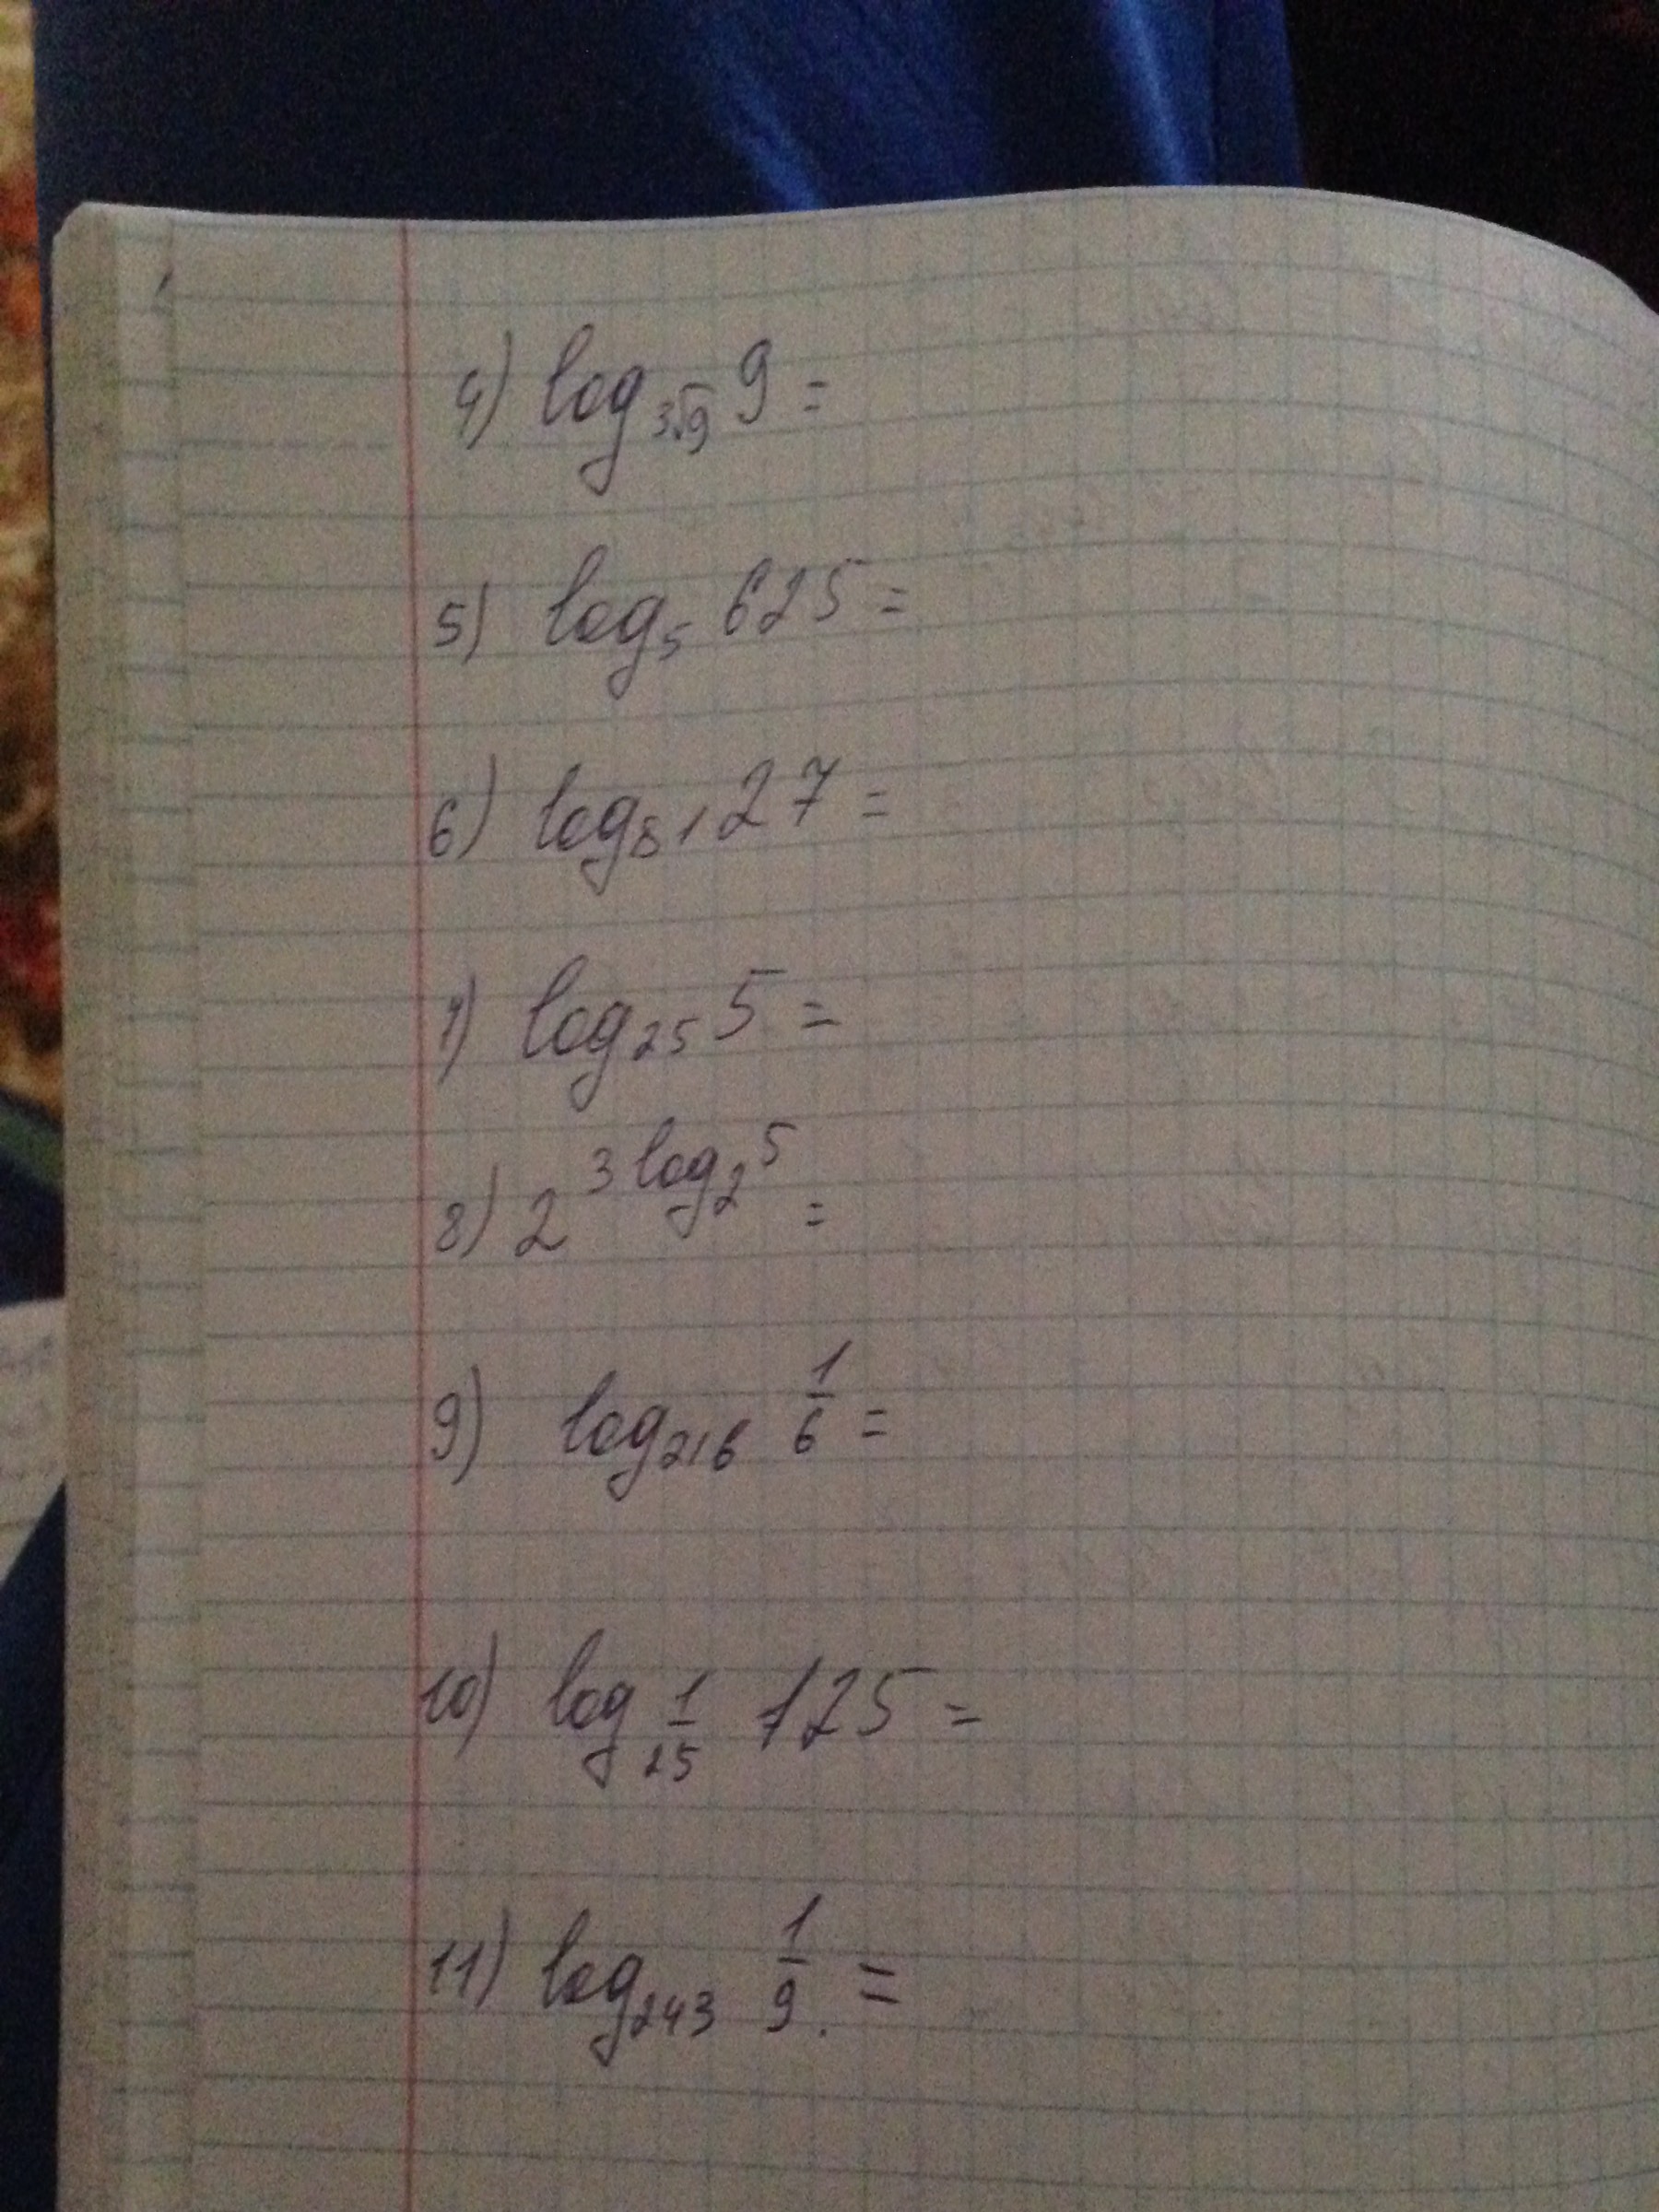 4) log_{3√9} 9 =
5) log_5 625 =
6) log_{81} 27 =
7) log_{25} 5 =
8) 2^{3 log_2 5} =
9) log_{216} \frac{1}{6} =
10) log_{\frac{1}{25}} 125 =
11) log_{243} \frac{1}{9} =